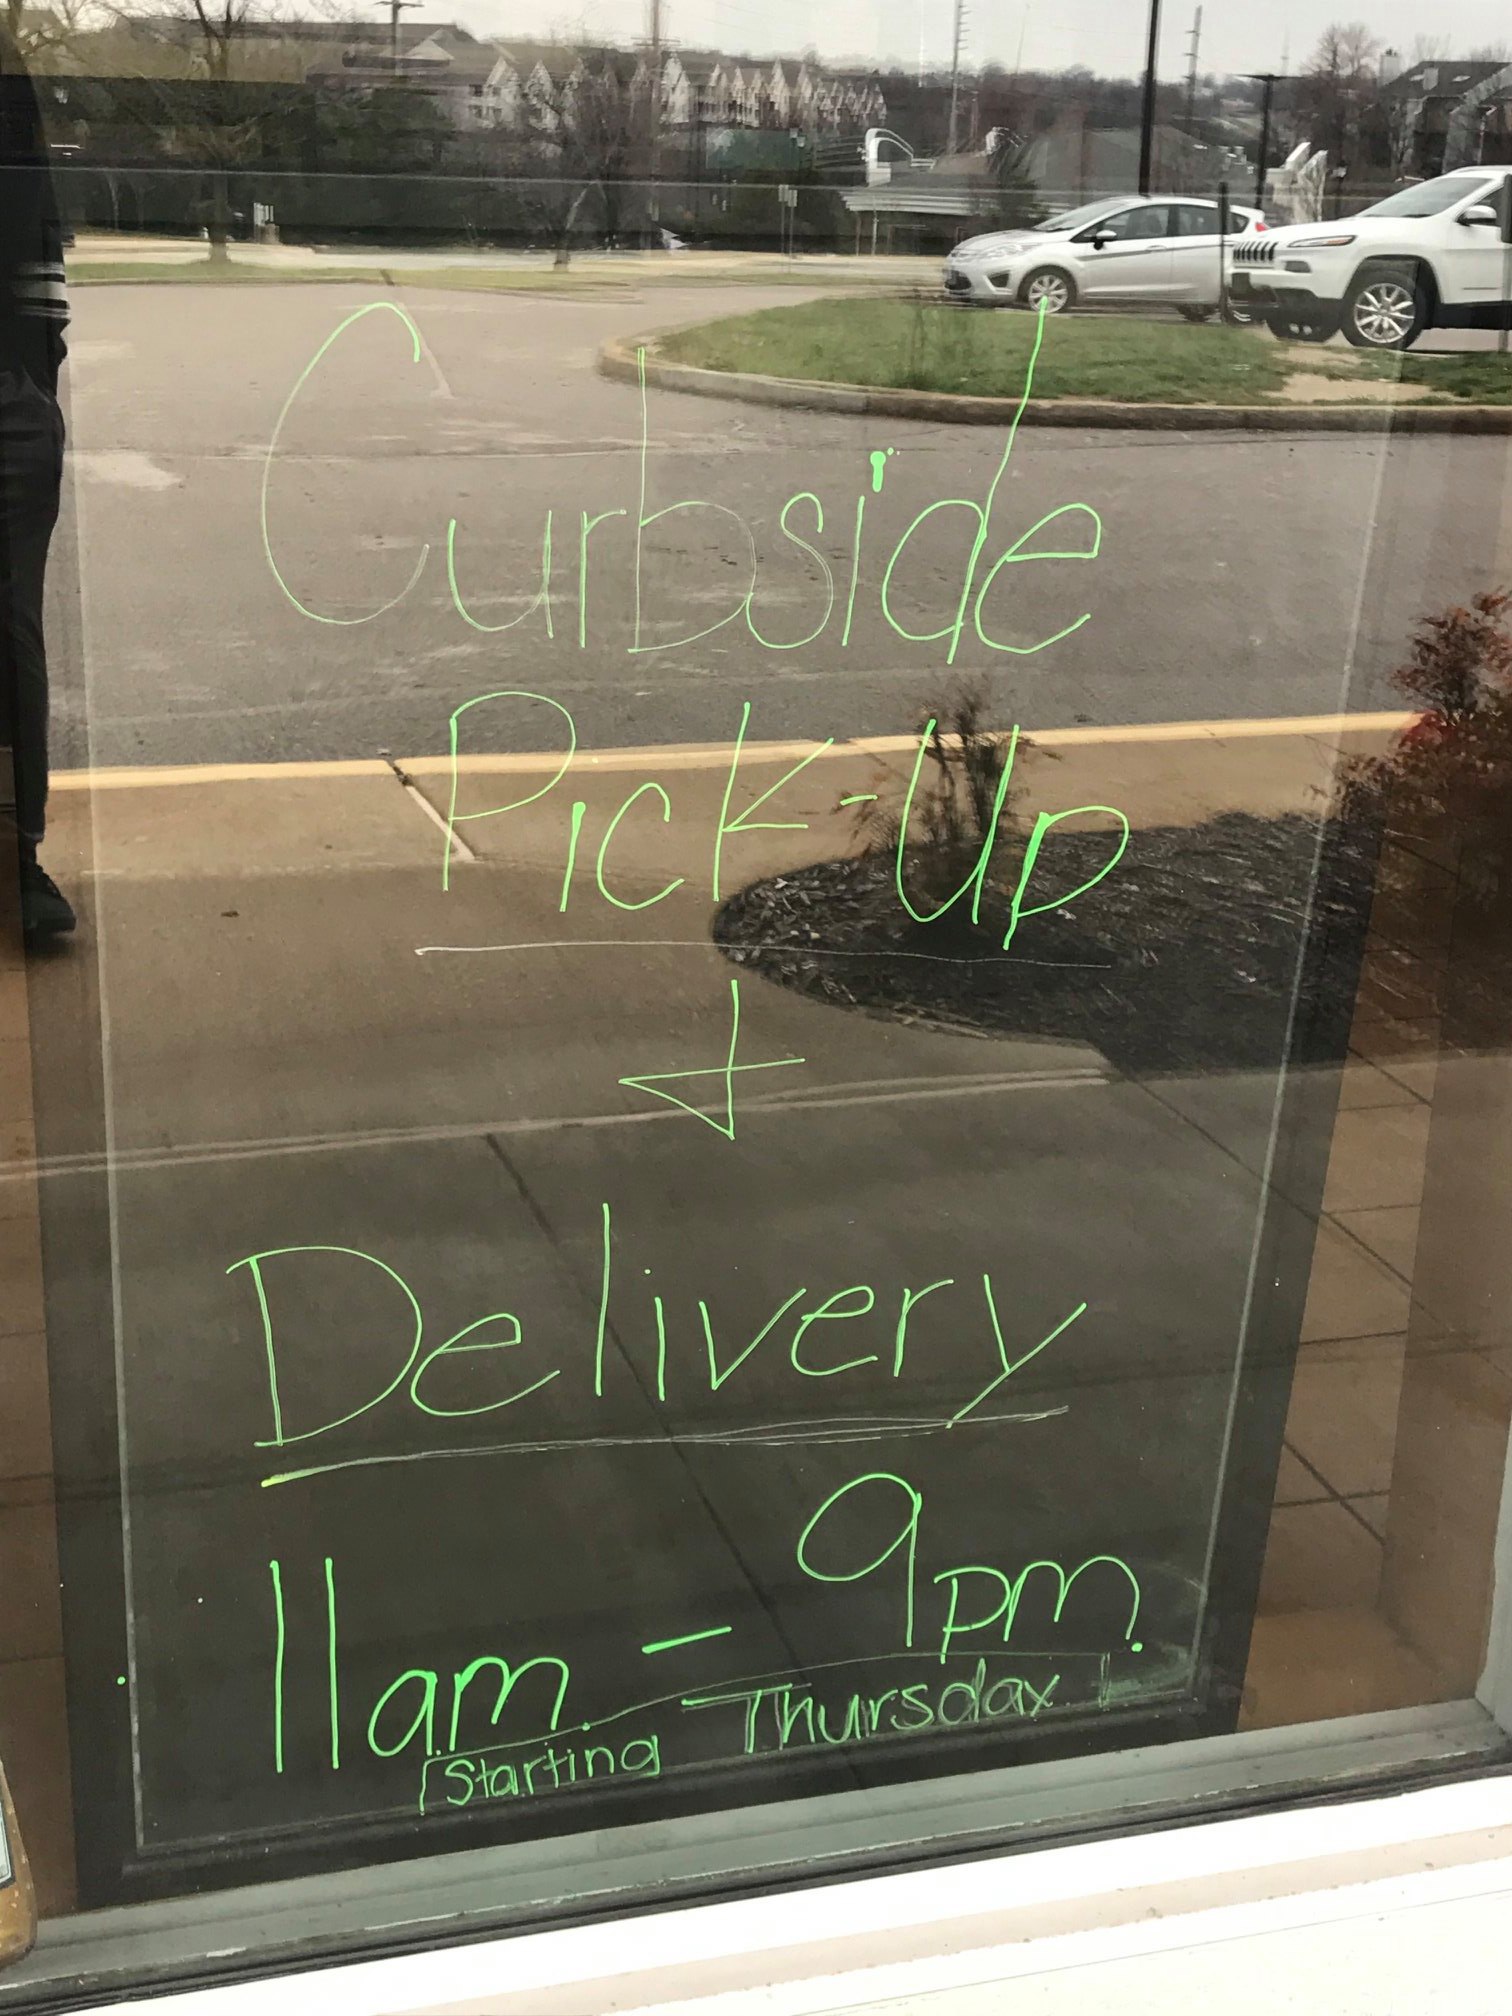 Curbside
Pick-Up
+
Delivery
11am - 9pm
(Starting Thursday)